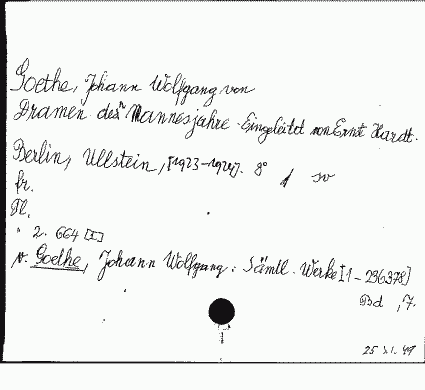 Goethe, Johann Wolfgang von
Dramen der Mannesjahre. Eingeleitet von Ernst Hardt.
Berlin, Ullstein, [1923-1924]. 8°
fr.
Pl.
2. 664 [I]
v. Goethe, Johann Wolfgang: Sämtl. Werke [1-296378]
Bd ,7.
25 XI. 49